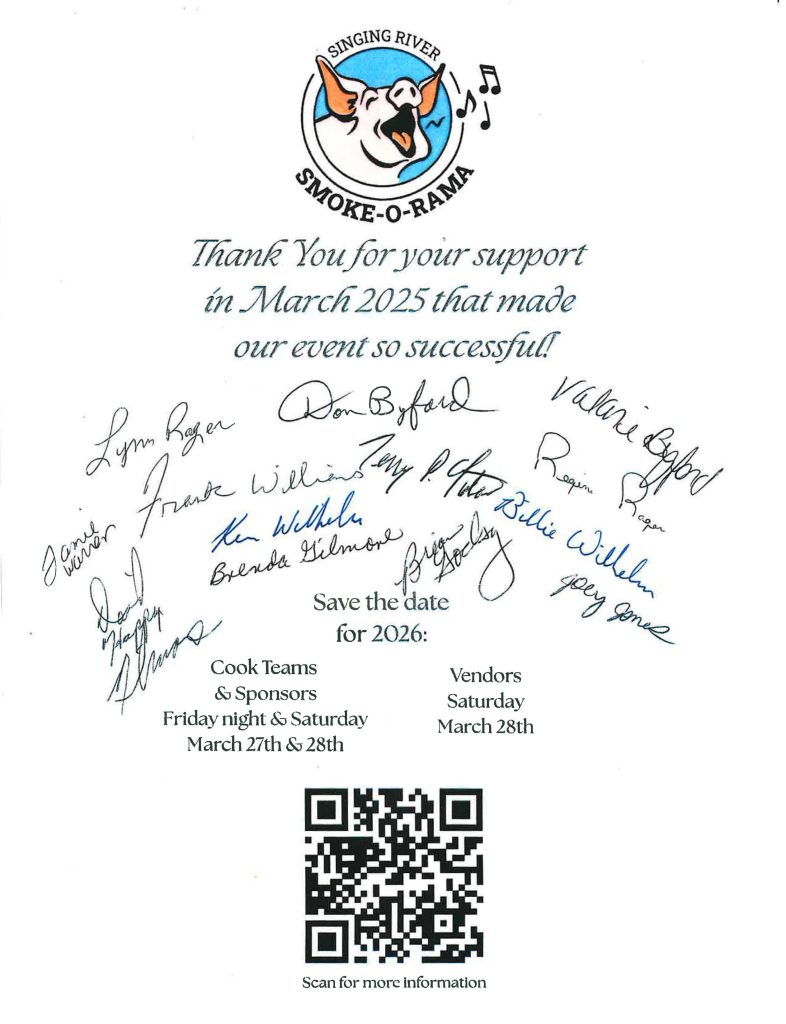 SINGING RIVER
SMOKE-O-RAMA
Thank You for your support
in March 2025 that made
our event so successful!
Lynn Rager
Don Byford
Valarie Byford
Frank Williams
Terry P.
Regina Rager
Janie Warren
Ken Wilhelm
Billie Wilhelm
Brenda Gilmore
Brian Godsy
Joey Jones
David
Happy
Save the date
for 2026:
Cook Teams
& Sponsors
Friday night & Saturday
March 27th & 28th
Vendors
Saturday
March 28th
Scan for more information